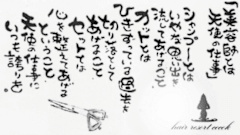 「美容師とは
天使の仕事」
シャンプーとは
いやな思い出を
流してあげること
カットとは
ひきずっている過去を
切り落として
あげること
セットとは
心を整えてあげる
ということ
天使の仕事に
いつも誇りを
hair resort cocek